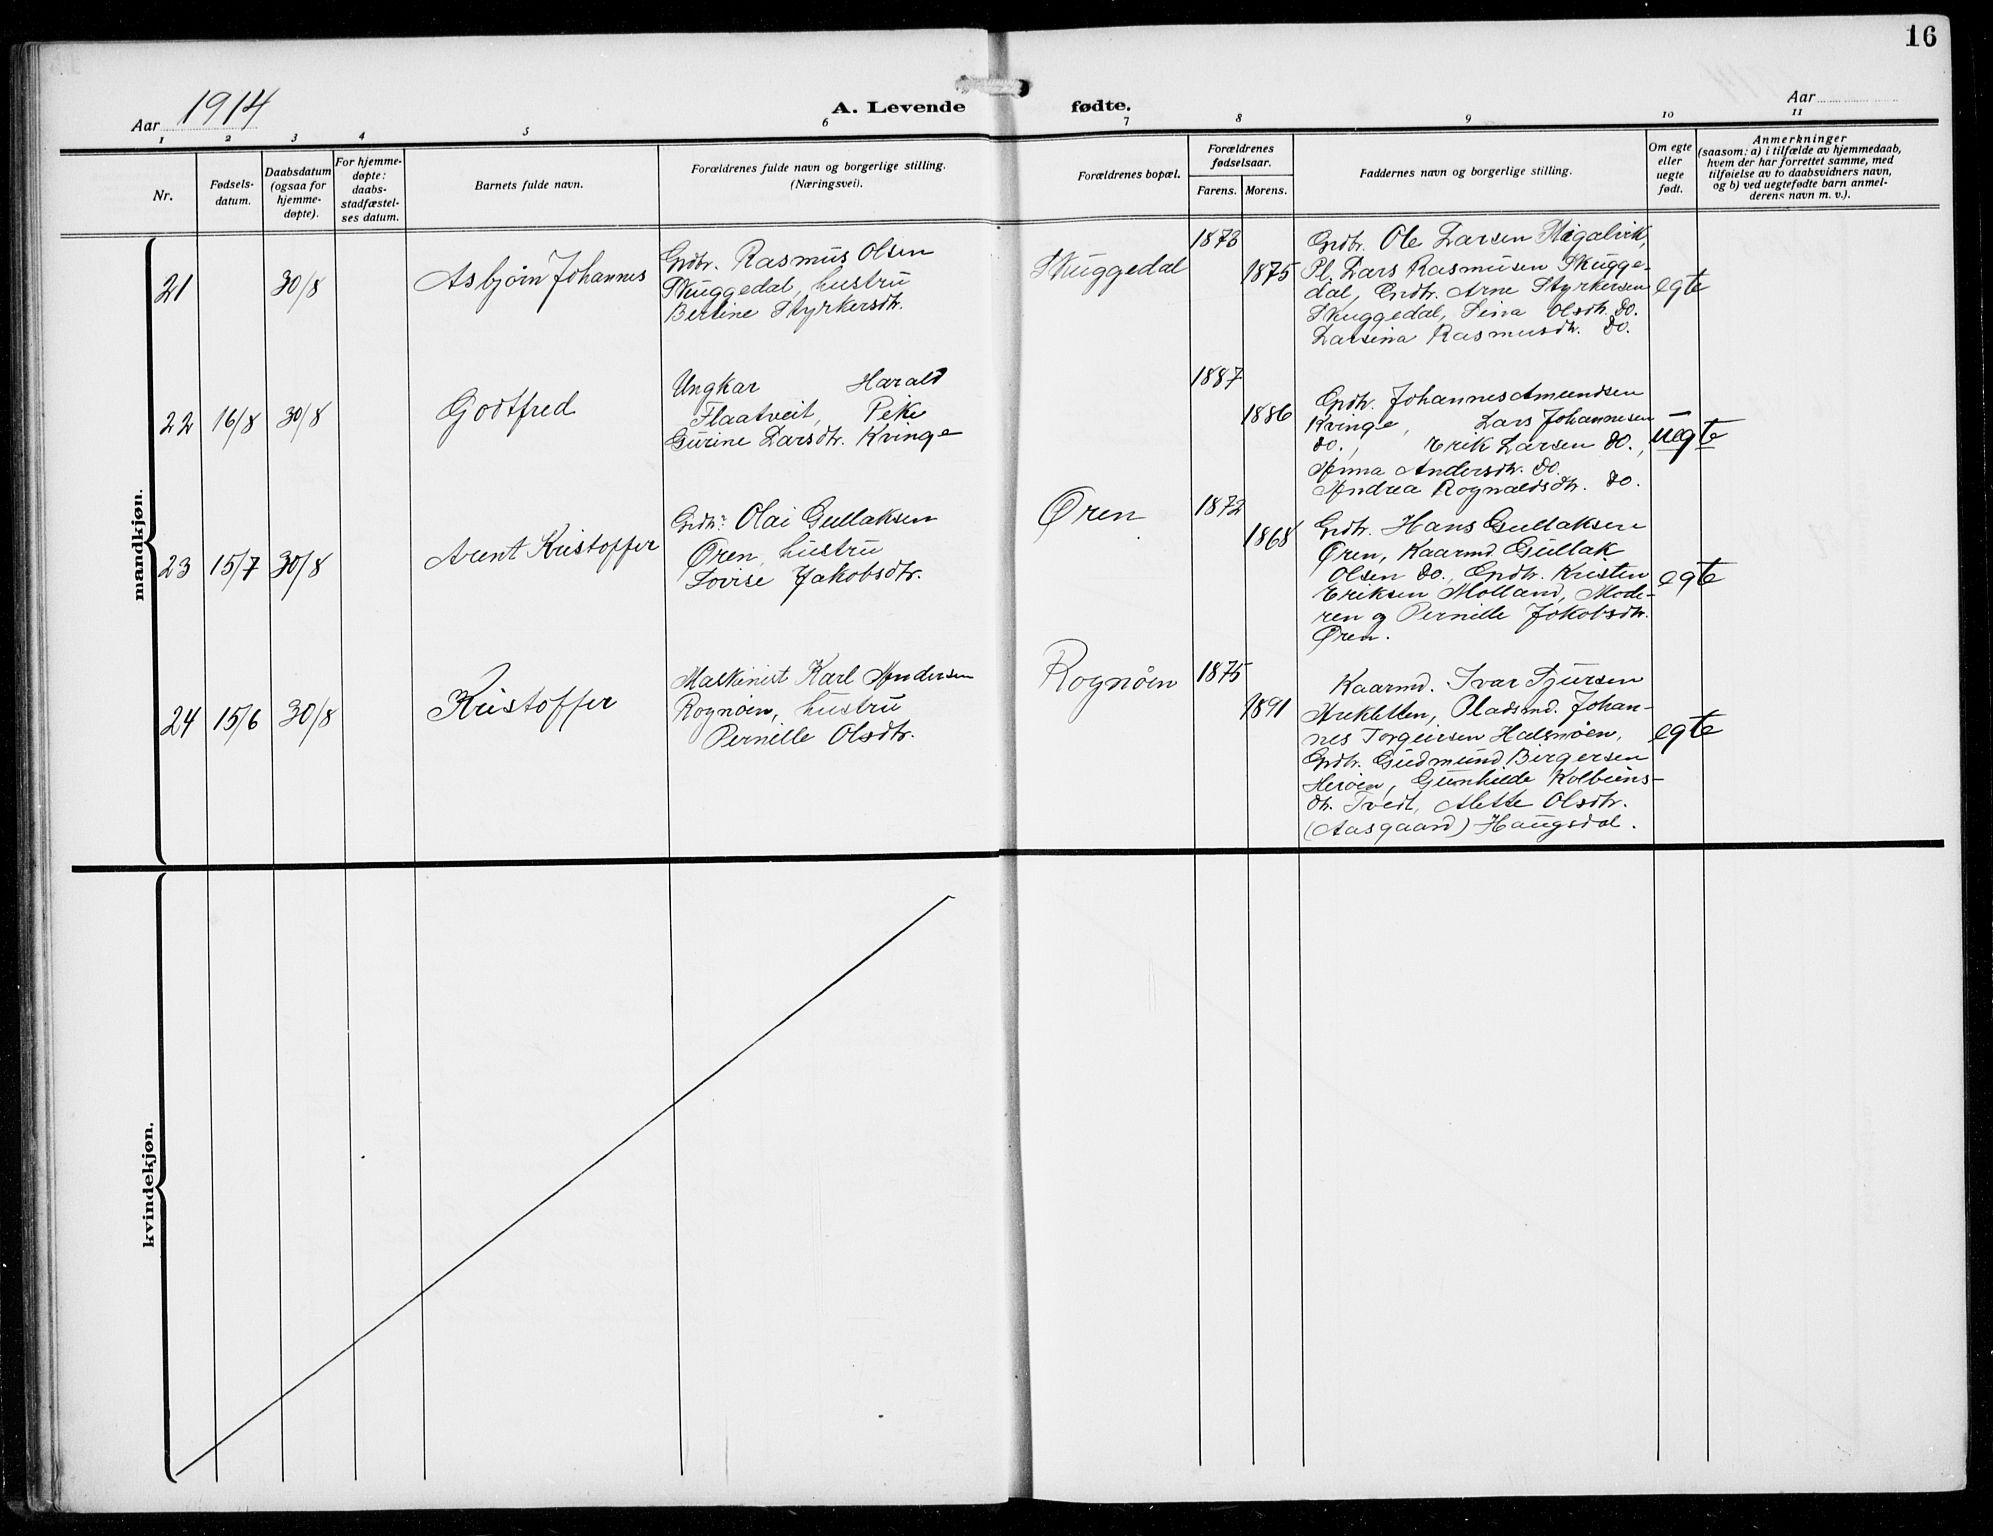 16
Aar 1914
A. Levende fødte.
Aar
1 2 3 4 5 6 7 8 9 10 11
Nr.
Fødsels-
datum.
Daabsdatum
(ogsaa for
hjemme-
døpte).
For hjemme-
døpte:
daabs-
stadfæstel-
ses datum.
Barnets fulde navn.
Forældrenes fulde navn og borgerlige stilling.
(Næringsvei).
Forældrenes bopæl.
Forældrenes
fødselsaar.
Farens. Morens.
Faddernes navn og borgerlige stilling.
Om egte
eller
uegte
født.
Anmerkninger
(saasom: a) i tilfælde av hjemmedaab,
hvem der har forrettet samme, med
tilføielse av to daabsvidners navn,
og b) ved uegtefødte barn anmel-
derens navn m. v.).
mandkjøn.
21
30/8
Asbjørn Johannes
Grdbr. Rasmus Olsen
Skuggedal, hustru
Bertine Styrkersdtr.
Skuggedal
1873
1875
Grdbr. Ole Larsen
Pl. Lars Rasmusen Skugge-
dal, Grdbr. Arne Styrkersen
Skuggedal, Sina Olsdtr. do.
Larsina Rasmusdtr. do.
egte
22
16/8
30/8
Godtfred
Ungkar Harald
Flaatveit, Pike
Gurine Larsdtr. Kvinge
1887
1886
Grdbr. Johannes Amundsen
Kvinge, Lars Johannesen
do., Erik Larsen do.,
Anna Andersdtr. do.
Andrea Rognaldsdtr. do.
uegte
23
15/7
30/8
Arent Kristoffer
Grdbr. Olai Gullaksen
Øren, hustru
Lovise Jakobsdtr.
Øren
1872
1868
Grdbr. Hans Gullaksen
Øren, Kaarmd. Gullak
Olsen do., Grdbr. Kristen
Eriksen Molland, Mode-
ren og Pernille Jokobsdtr.
Øren.
egte
24
15/6
30/8
Kristoffer
Maskinist Karl Andersen
Rognøen, hustru
Pernille Olsdtr.
Rognøen
1875
1891
Kaarmd. Ivar Sjursen
Arekletten, Pladsmd. Johan-
nes Torgeirsen Halsnøen,
Grdbr. Gudmund Birgersen
Herøen, Gunhilde Kolbeins-
dtr. Tvedt, Alette Olsdtr.
(Aasgaard) Haugsdal.
egte
kvindekjøn.